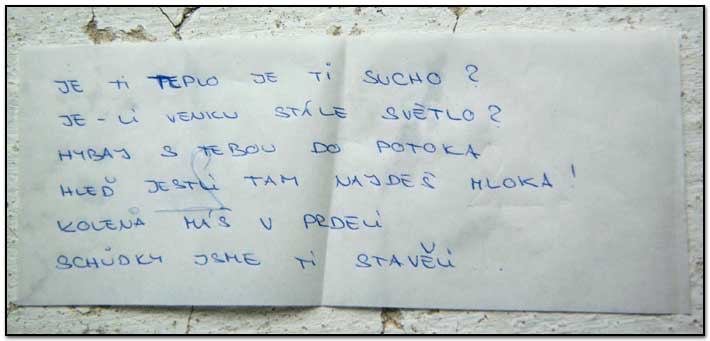 JE TI TEPLO JE TI SUCHO?
JE-LI VENKU STÁLE SVĚTLO?
HYBAJ S TEBOU DO POTOKA
HLEĎ JESTLI TAM NAJDEŠ MLOKA!
KOLENA MÁŠ V PRDELI
SCHŮDKY JSME TI STAVĚLI